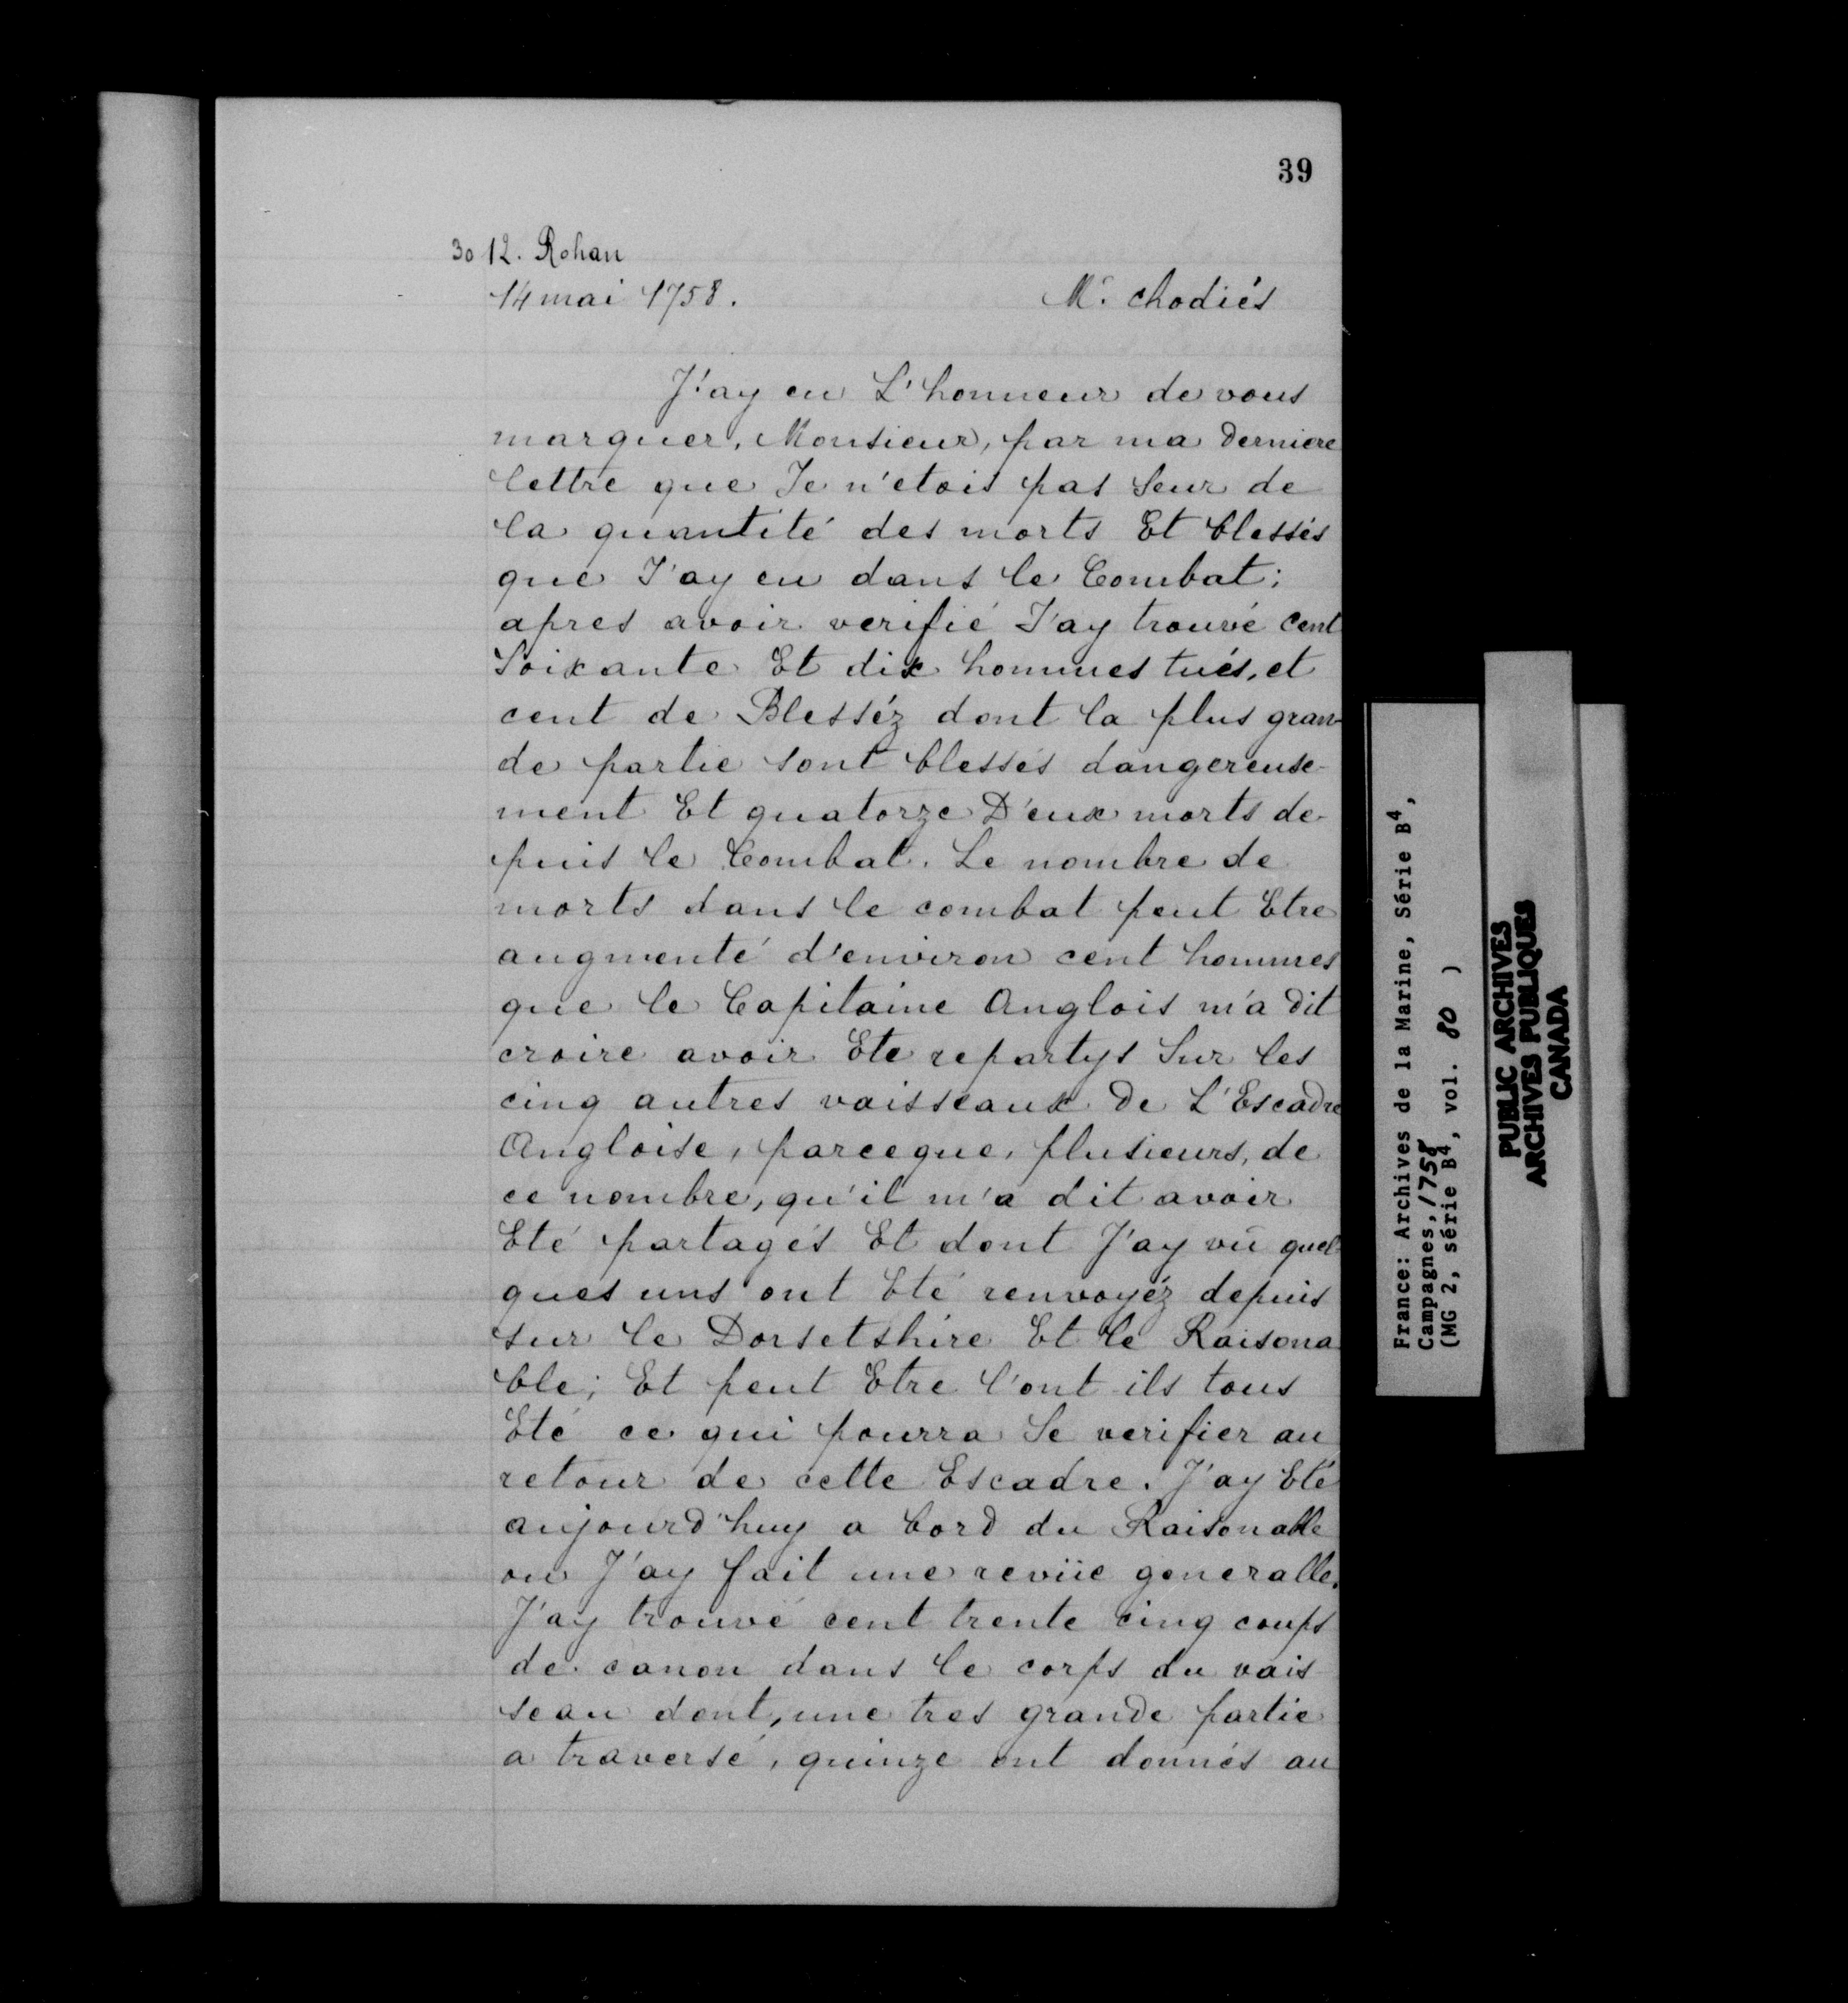 39
30 12. Rohan
14 mai 1758. Mr. Chodiés
J'ay eu L'honneur de vous
marquer, Monsieur, par ma derniere
lettre que Je n'etois pas Seur de
la quantité des morts Et blessés
que J'ay eu dans le Combat;
apres avoir verifié J'ay trouvé Cent
Soixante Et dix hommes tués, et
cent de Blesséz dont la plus gran-
de partie sont blessés dangereuse-
ment Et quatorze D'eux morts de-
puis le Combat. Le nombre de
morts dans le combat peut Etre
augmenté d'environ cent hommes
que le Capitaine Anglois m'a dit
croire avoir Ete repartys Sur les
cinq autres vaisseaux de L'Escadre
Angloise, parceque, plusieurs, de
ce nombre, qu'il m'a dit avoir
Eté partagés Et dont J'ay vû quel-
ques uns ont Eté renvoyéz depuis
sur le Dorsetshire Et le Raisona
ble; Et peut Etre l'ont ils tous
Eté ce qui pourra Se verifier au
retour de cette Escadre. J'ay Eté
aujourd'huy a bord du Raisonable
ou J'ay fait une revüe generalle.
J'ay trouvé cent trente cinq coups
de canon dans le corps du vais
seau dont, une tres grande partie
a traversé, quinze ont donnés au
France: Archives de la Marine, Série B4,
Campagnes, 1758
(MG 2, série B4, vol. 80 )
PUBLIC ARCHIVES
ARCHIVES PUBLIQUES
CANADA